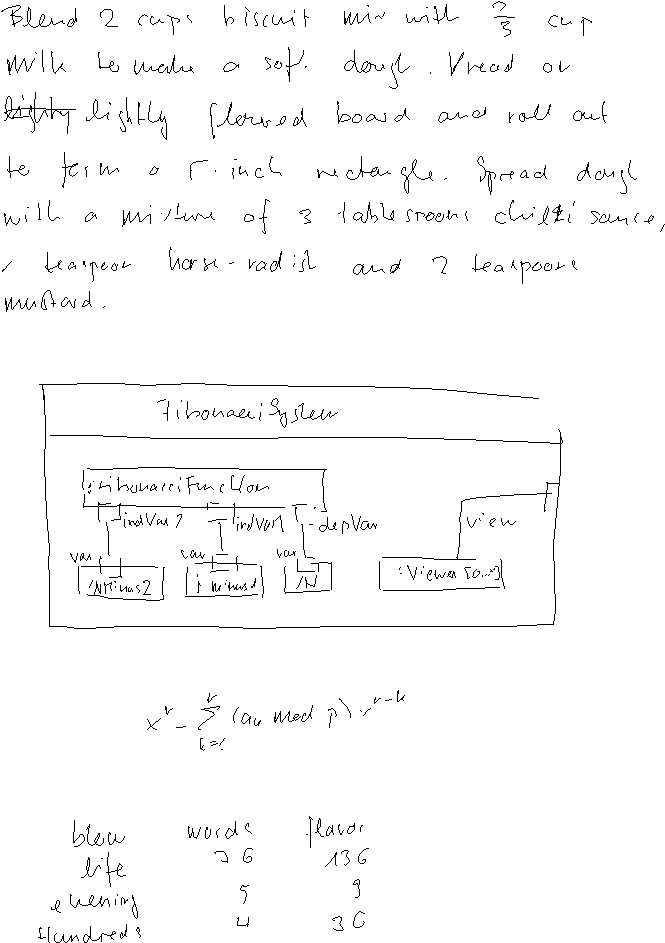 Blend 2 cups biscuit mix with 2/3 cup
milk to make a soft dough. Knead on
lightly floured board and roll out
to form a 5-inch rectangle. Spread dough
with a mixture of 3 tablespoons chilli sauce,
1 teaspoon horse-radish and 2 teaspoons
mustard.
FibonacciSystem
:FibonacciFunction
indVar2 indVar1 depVar
view
var var var
/NMinus2 /NMinus1 /N :Viewer [0..*]
x^r - ∑_{k=1}^{r} (a_k mod p) x^{r-k}
blow words flavor
life 76 136
evening 5 9
Hundreds 4 36